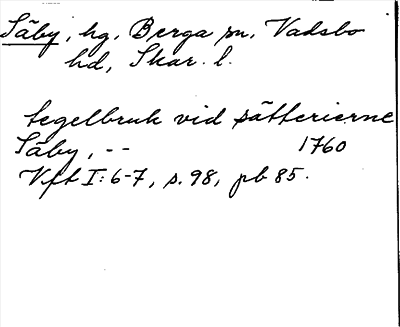 Säby, hg, Berga sn, Vadsbo
hd, Skar. l.
tegelbruk vid sätterierne
Säby, -- 1760
Vft I:6-7, s. 98, pb 85.